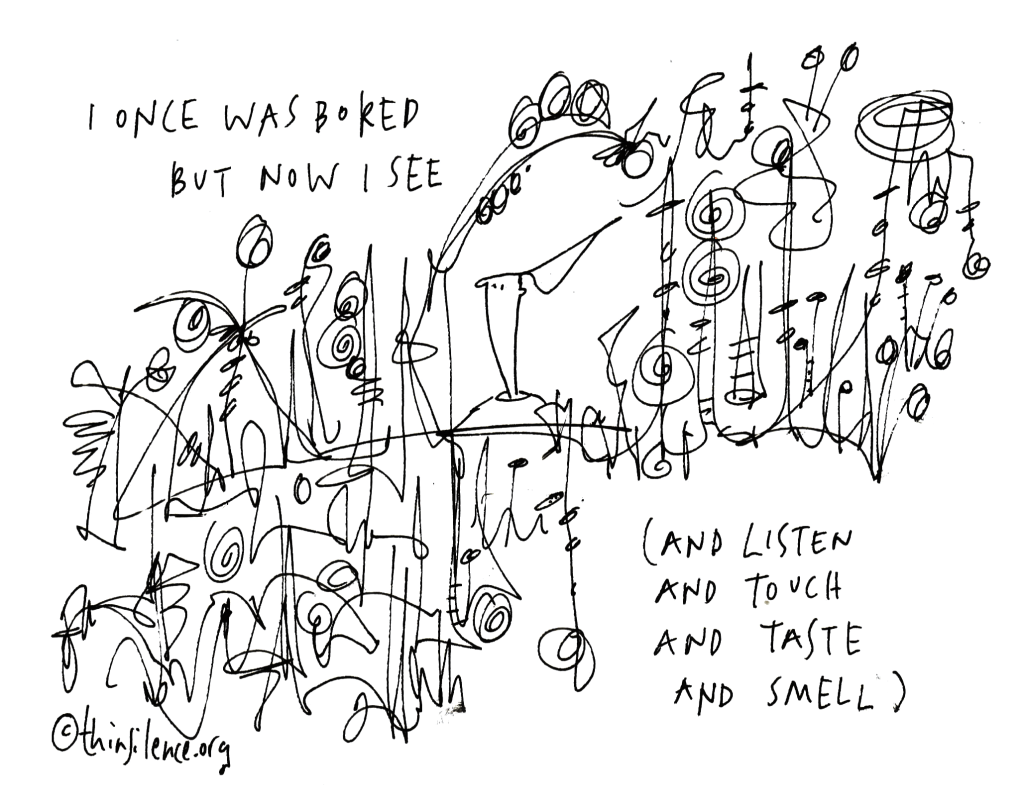 I ONCE WAS BORED
BUT NOW I SEE
(AND LISTEN
AND TOUCH
AND TASTE
AND SMELL)
©thinsilence.org